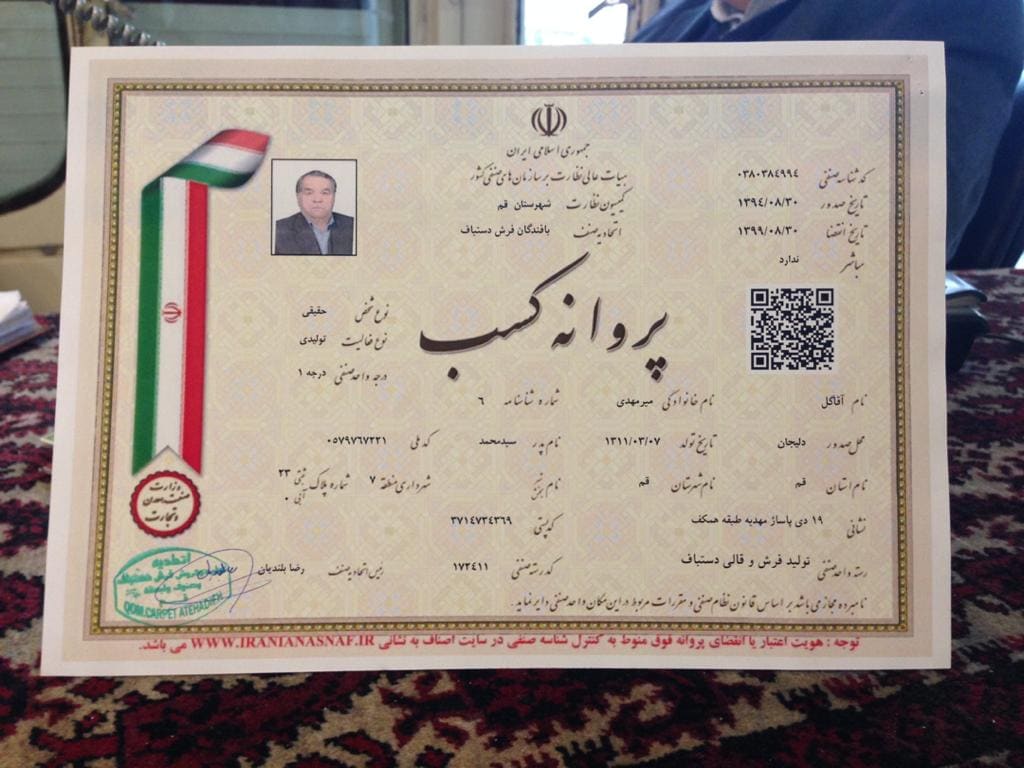 جمهوری اسلامی ایران
هیات عالی نظارت بر سازمان های صنفی کشور
کمیسیون نظارت شهرستان قم
اتحادیه صنف بافندگان فرش دستباف
کد شناسه صنفی ۰۳۸۰۳۸٤۹۹٤
تاریخ صدور ۱۳۹٤/۰۸/۳۰
تاریخ انقضا ۱۳۹۹/۰۸/۳۰
مباشر ندارد
پروانه کسب
نوع شخص حقیقی
نوع فعالیت تولیدی
درجه واحد صنفی درجه ۱
نام آقاگل نام خانوادگی میرمهدی شماره شناسنامه ۶
محل صدور دلیجان تاریخ تولد ۱۳۱۱/۰۳/۰۷ نام پدر سیدمحمد کد ملی ۰۵۷۹۷۶۷۲۲۱
نام استان قم نام شهرستان قم نام بخش شهرداری منطقه ۷ شماره پلاک ثبتی ۲۳ آبی ۰
نشانی ۱۹ دی پاساژ مهدیه طبقه همکف کد پستی ۳۷۱٤۷۳٤۳۶۹
رسته واحد صنفی تولید فرش و قالی دستباف کد رسته صنفی ۱۷۲٤۱۱ رئیس اتحادیه صنف رضا بلندیان
نامبرده مجاز می باشد بر اساس قانون نظام صنفی و مقررات مربوط در این مکان واحد صنفی دایر نماید.
توجه : هویت اعتبار یا انقضای پروانه فوق منوط به کنترل شناسه صنفی در سایت اصناف به نشانی WWW.IRANIANASNAF.IR می باشد.
وزارت
صنعت، معدن
و تجارت
اتحادیه
قم
QOM.CARPET ATEHADIEH